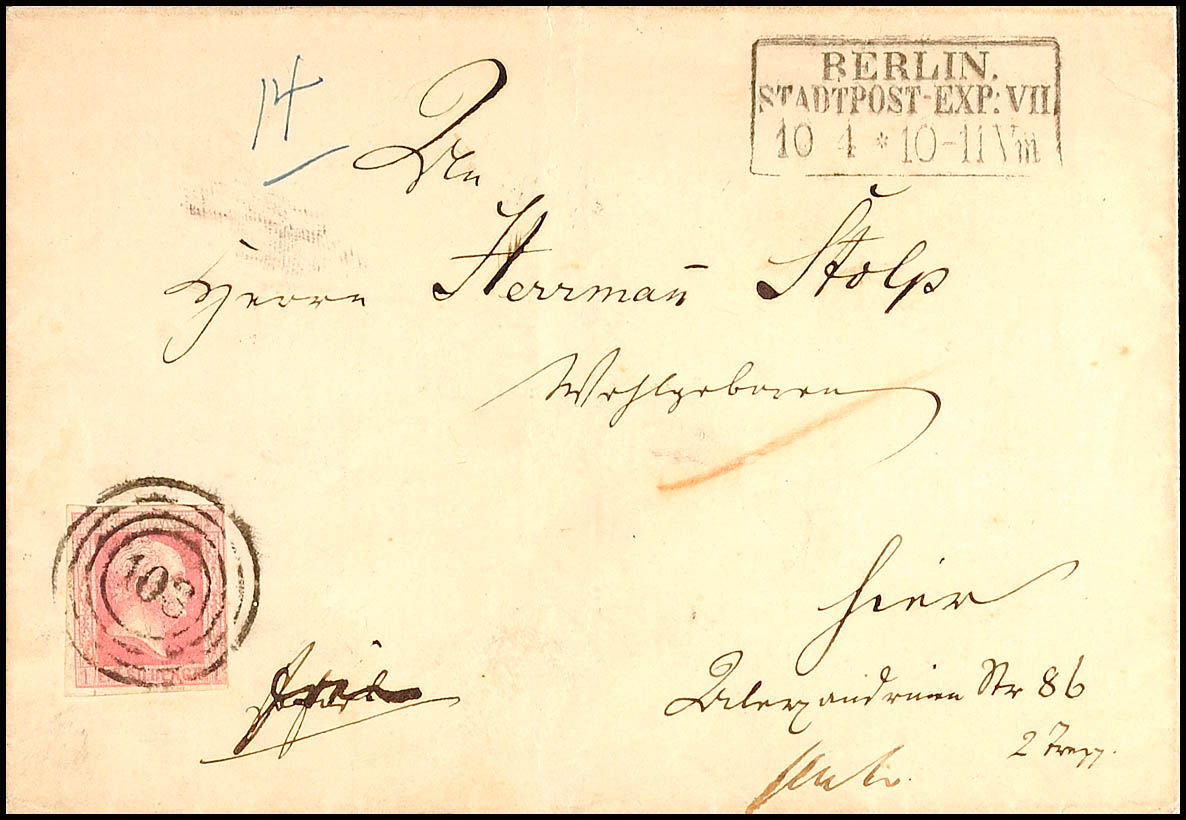 BERLIN.
STADTPOST-EXP: VII.
10 4 * 10-11 Vm
14
An
Herrn Herrman̄ Stolp
Wohlgeboren
hier
Alexandrinen Str 86
2 Trepp.
103
1